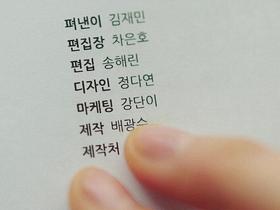 펴낸이 김재민
편집장 차은호
편집 송해린
디자인 정다연
마케팅 강단이
제작 배광수
제작처